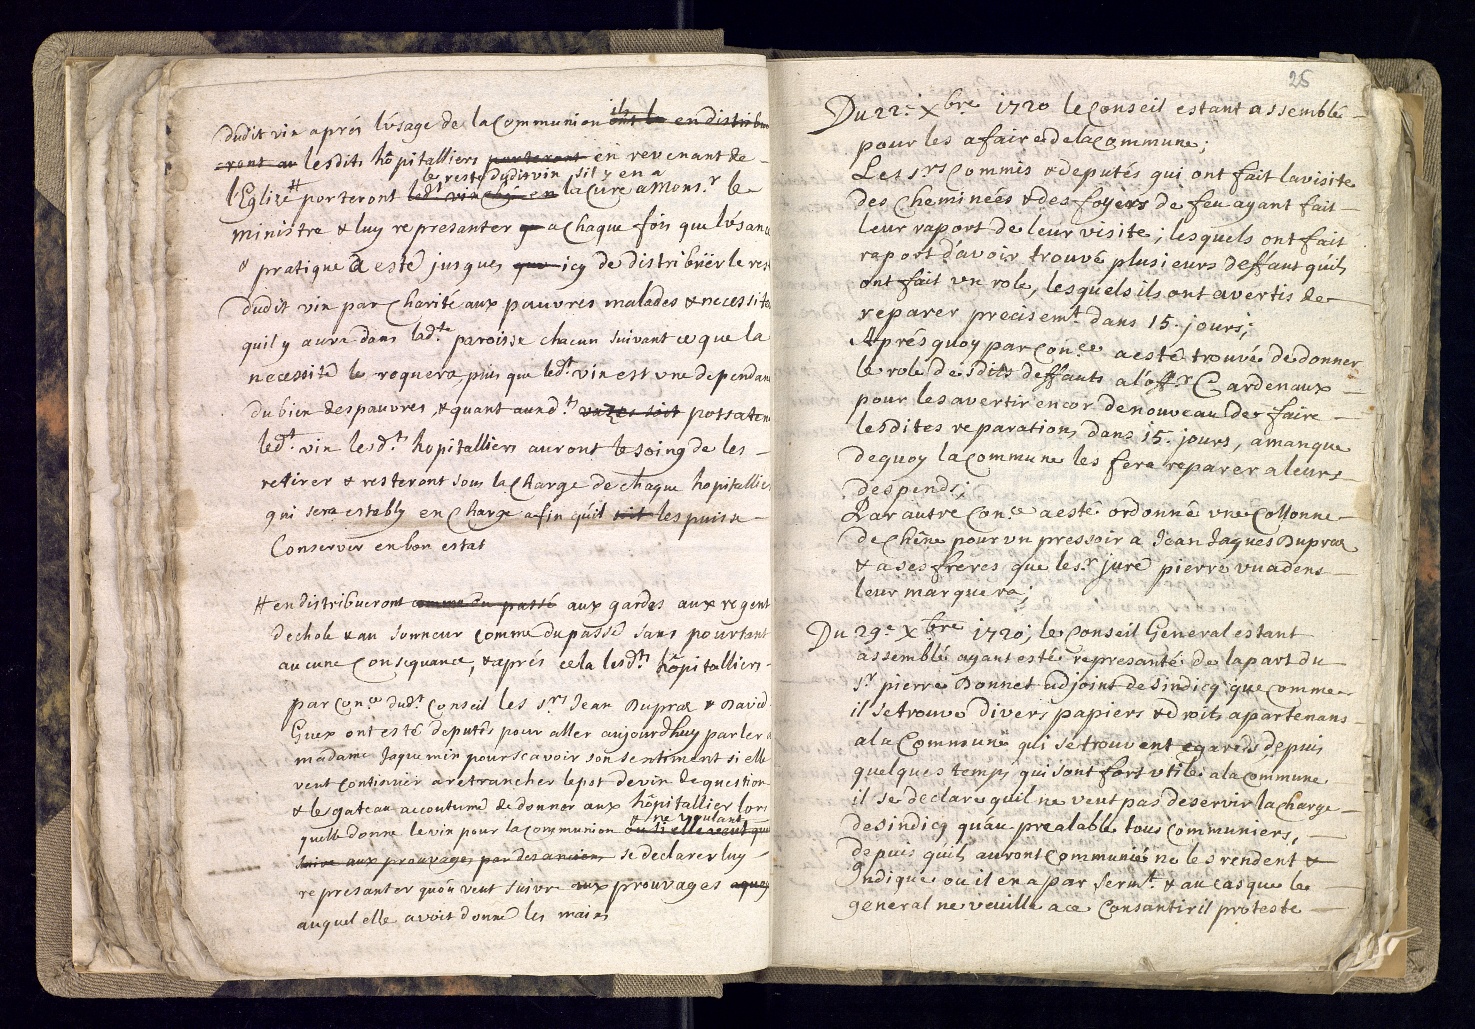 dudit vin aprés l'úsage de la Communion ils ont le en distribu
eront au lesdits hôpitalliers porteront en revenant de
le reste dudit vin s'il y en a
l'Eglize # porteront led.t vin chés en la Cure a Mons.r le
ministre & luy represanter qu a Chaque fois que l'úsance
& pratique a esté jusques que icy de distribüer le reste
dudit vin par Charité aux pauvres malades & necessite
quil y aura dans lad.te paroisse chacun suivant ce que la
necessité le requera, puis que led.t vin est une dependan
du bien des pauvres, & quant aux d.ts vazes soit pots a ten
led.t vin lesd.ts hopitalliers auront le soing de les
retirer & resteront sous la Charge de chaque hopitallier
qui sera establÿ en Charge afin qu'il soit les puisse
Conserver en bon estat
# en distribueront comme du passé aux gardes aux regent
dechole & au sonneur comme du passé sans pourtant
aucune Consequance, & aprés cela lesd.ts hôpitalliers
par Con.ce dud.t Conseil les s.rs Jean Dupraz & David
Guex ont esté deputés pour aller aujourdhuy parler a
madame Jaquemin pour scavoir son sentiment si elle
veut Continüer a retrancher le pot de vin de question
& les gateau accoutumé de donner aux hôpitallier lors
quelle donne le vin pour la Communion & ne voulant
ou si elle veut que
suivre aux prouvages par des anciens se declarer luy
represanter quón veut suivre aux prouvages aquoy
auquel elle avoit donné les mains
25
Du 22.e Xbre 1720 le Conseil estant assemblé
pour les afaire de la Commune;
Les s.rs Commis & deputés qui ont fait la visite
des Cheminées & des foyers de feu ayant fait
leur raport de leur visite; lesquels ont fait
raport d'avoir trouvé plusieurs deffaut qu'ils
ont fait un role, lesquels ils ont avertis de
reparer precisem.t dans 15. jours;
Aprés quoy par Con.ce a esté trouvé de donner
le role desdits deffauts a l'off.r Cardenaux
pour les avertir encor de nouveau de faire
lesdites reparations dans 15. jours, a manque
dequoy la Commune les fera reparer a leurs
despends;
Par autre Con.ce a esté ordonné une Collonne
de Chêne pour un pressoir a Jean Jaques Dupraz
& a ses freres que le s.r juré pierre vuadens
leur marquera;
Du 29.e Xbre 1720; le Conseil General estant
assemblé ayant esté represanté de la part du
s.r pierre Bonnet adjoint de sindicq que comme
il se trouve divers papiers & droits apartenans
a la Commune qui se trouvent egarés depuis
quelques temps qui sont fort utile a la Commune
il se declare quil ne veut pas deservir la Charge
de sindicq qu'au prealable tous Communiers,
depuis qu'ils auront Communié ne les rendent &
Indique ou il en a par serm.t & au cas que le
general ne veuille a ce Consantir il proteste